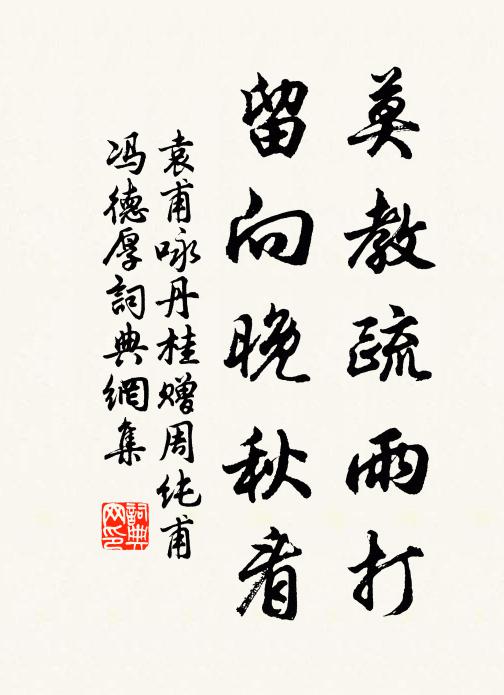 莫教疏雨打
留向晚秋看
袁甫咏丹桂赠周纯甫
冯德厚詞典網集
詞典
网印